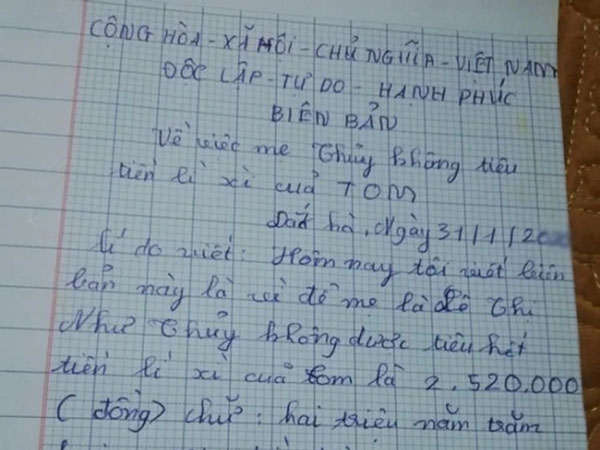 CỘNG HÒA - XÃ HỘI - CHỦ NGHĨA - VIỆT NAM
ĐỘC LẬP - TỰ DO - HẠNH PHÚC
BIÊN BẢN
Về việc mẹ Thủy không tiêu
tiền lì xì của TOM
hà, Ngày 31/1/2
lí do viết: Hôm nay tôi viết biên
bản này là vì để mẹ là Thị
Như Thủy không được tiêu hết
tiền lì xì của tom là 2.520.000
(đồng) chữ: hai triệu năm trăm